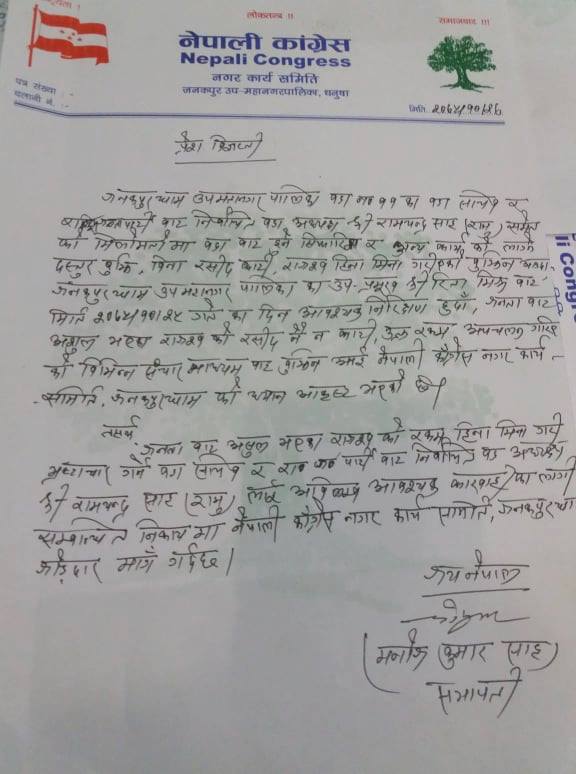 लोकतन्त्र !!
समाजवाद !!!
नेपाली कांग्रेस
Nepali Congress
नगर कार्य समिति
जनकपुर उप-महानगरपालिका, धनुषा
पत्र संख्या :-
चलानी नं. :-
मिति. २०७४/१०/२६
प्रेश विज्ञप्ती
जनकपुरधाम उपमहानगर पालिका वडा का वडा सचिव र
बाट निर्वाचित वडा अध्यक्ष श्री रामचन्द्र साह (रामु) समेत
को मिलोमतो मा वडा बाट हुने सिफारिस र अन्य काम को लागि
दस्तुर बुझि, विना रसीद काटी, राजश्व हिना मिना गरीएको बुझिन आएको
जनकपुरधाम उपमहानगर पालिका का उप-प्रमुख श्री रिता मिश्र बाट
मिति २०७४/१०/२५ गते का दिन आकस्मिक निरिक्षण हुदाँ, जनता बाट
असुल भएको राजश्व को रसीद नै न काटी, रकम अपचलन गरिएको
को विभिन्न संचार माध्यम बाट बुझिन आई नेपाली काँग्रेस नगर कार्य-
समिति, जनकपुरधाम को ध्यान आकृष्ट भएको छ।
तसर्थ,
जनता बाट असुल भएको राजश्व को रकम हिना मिना गरी
भ्रष्टाचार गर्ने वडा सचिव र पार्टी बाट निर्वाचित वडा अध्यक्ष
श्री रामचन्द्र साह (रामु) लाई अविलम्ब आवश्यक कारवाही का लागी
सम्बन्धित निकाय मा नेपाली काँग्रेस नगर कार्य समिति, जनकपुरधाम
जोडदार माग गर्दछ।
जय नेपाल
(मनोज कुमार साह)
सभापती
li Congress